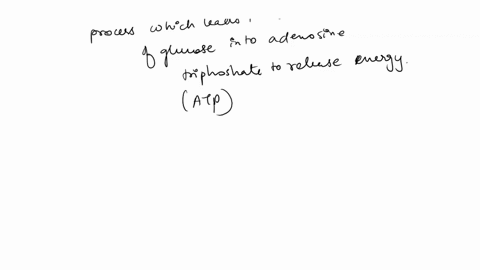 process which leads
of glucose into adenosine
triphoshate to release energy.
(ATP)